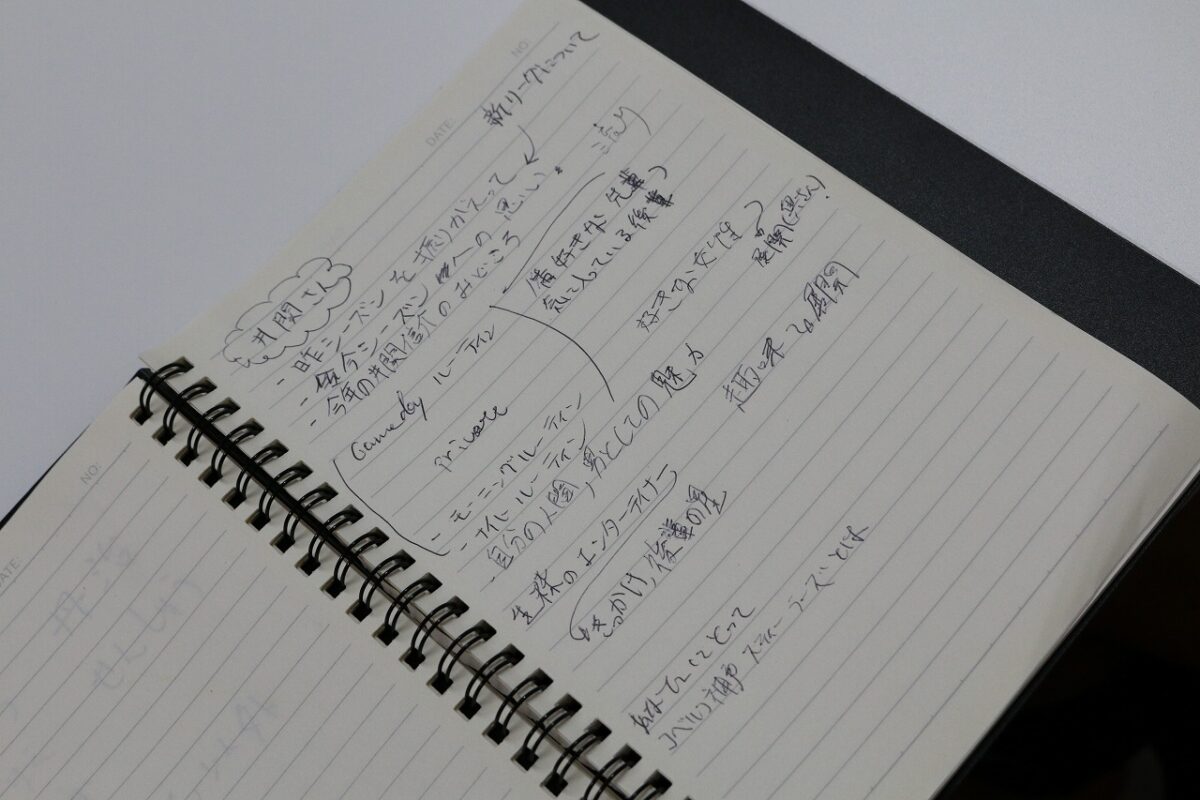 NO.
DATE
新リーグについて
井関さん
- 昨シーズンを振りかえって
- 今シーズンへの思い。
- 今年の井関信介のみどころ
Gameday ルーティン
private
- モーニングルーティン
- ナイトルーティン
- 自分の人間, 男としての魅力
好きな先輩
気に入っている後輩
好きな女性
趣味
生粋のエンターティナー
きっかけ, 後輩の
あなたにとって
コベルコ神戸スティーラーズとは
NO.
DATE